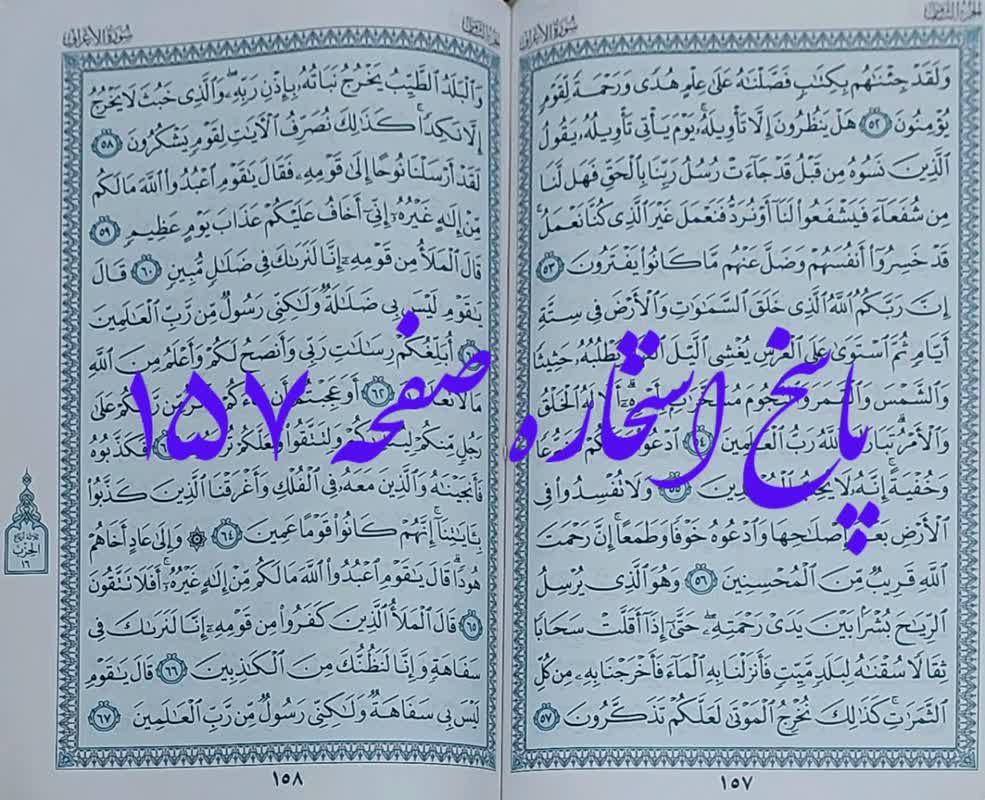 سُورَةُ الأَعْرَافِ
وَلَقَدْ جِئْنَٰهُم بِكِتَٰبٍ فَصَّلْنَٰهُ عَلَىٰ عِلْمٍ هُدًى وَرَحْمَةً لِّقَوْمٍ
يُؤْمِنُونَ ٥٢ هَلْ يَنظُرُونَ إِلَّا تَأْوِيلَهُۥ يَوْمَ يَأْتِى تَأْوِيلُهُۥ يَقُولُ
ٱلَّذِينَ نَسُوهُ مِن قَبْلُ قَدْ جَآءَتْ رُسُلُ رَبِّنَا بِٱلْحَقِّ فَهَل لَّنَا
مِن شُفَعَآءَ فَيَشْفَعُوا۟ لَنَآ أَوْ نُرَدُّ فَنَعْمَلَ غَيْرَ ٱلَّذِى كُنَّا نَعْمَلُ
قَدْ خَسِرُوٓا۟ أَنفُسَهُمْ وَضَلَّ عَنْهُم مَّا كَانُوا۟ يَفْتَرُونَ ٥٣
إِنَّ رَبَّكُمُ ٱللَّهُ ٱلَّذِى خَلَقَ ٱلسَّمَٰوَٰتِ وَٱلْأَرْضَ فِى سِتَّةِ
أَيَّامٍ ثُمَّ ٱسْتَوَىٰ عَلَى ٱلْعَرْشِ يُغْشِى ٱلَّيْلَ يَطْلُبُهُۥ حَثِيثًا
وَٱلشَّمْسَ وَٱلْقَمَرَ وَٱلنُّجُومَ أَلَا لَهُ ٱلْخَلْقُ
وَٱلْأَمْرُ تَبَارَكَ ٱللَّهُ رَبُّ ٱلْعَٰلَمِينَ ٥٤ ٱدْعُوا۟
وَخُفْيَةً إِنَّهُۥ لَا يُحِبُّ ٱلْمُعْتَدِينَ ٥٥ وَلَا تُفْسِدُوا۟ فِى
ٱلْأَرْضِ بَعْدَ إِصْلَٰحِهَا وَٱدْعُوهُ خَوْفًا وَطَمَعًا إِنَّ رَحْمَتَ
ٱللَّهِ قَرِيبٌ مِّنَ ٱلْمُحْسِنِينَ ٥٦ وَهُوَ ٱلَّذِى يُرْسِلُ
ٱلرِّيَٰحَ بُشْرًۢا بَيْنَ يَدَىْ رَحْمَتِهِۦ حَتَّىٰٓ إِذَآ أَقَلَّتْ سَحَابًا
ثِقَالًا سُقْنَٰهُ لِبَلَدٍ مَّيِّتٍ فَأَنزَلْنَا بِهِ ٱلْمَآءَ فَأَخْرَجْنَا بِهِۦ مِن كُلِّ
ٱلثَّمَرَٰتِ كَذَٰلِكَ نُخْرِجُ ٱلْمَوْتَىٰ لَعَلَّكُمْ تَذَكَّرُونَ ٥٧
١٥٧
سُورَةُ الأَعْرَافِ
وَٱلْبَلَدُ ٱلطَّيِّبُ يَخْرُجُ نَبَاتُهُۥ بِإِذْنِ رَبِّهِۦ وَٱلَّذِى خَبُثَ لَا يَخْرُجُ
إِلَّا نَكِدًا كَذَٰلِكَ نُصَرِّفُ ٱلْءَايَٰتِ لِقَوْمٍ يَشْكُرُونَ ٥٨
لَقَدْ أَرْسَلْنَا نُوحًا إِلَىٰ قَوْمِهِۦ فَقَالَ يَٰقَوْمِ ٱعْبُدُوا۟ ٱللَّهَ مَا لَكُم
مِّنْ إِلَٰهٍ غَيْرُهُۥٓ إِنِّىٓ أَخَافُ عَلَيْكُمْ عَذَابَ يَوْمٍ عَظِيمٍ ٥٩
قَالَ ٱلْمَلَأُ مِن قَوْمِهِۦٓ إِنَّا لَنَرَىٰكَ فِى ضَلَٰلٍ مُّبِينٍ ٦٠ قَالَ
يَٰقَوْمِ لَيْسَ بِى ضَلَٰلَةٌ وَلَٰكِنِّى رَسُولٌ مِّن رَّبِّ ٱلْعَٰلَمِينَ
أُبَلِّغُكُمْ رِسَٰلَٰتِ رَبِّى وَأَنصَحُ لَكُمْ وَأَعْلَمُ مِنَ ٱللَّهِ
مَا لَا تَعْلَمُونَ ٦٢ أَوَعَجِبْتُمْ أَن جَآءَكُمْ ذِكْرٌ مِّن رَّبِّكُمْ عَلَىٰ
رَجُلٍ مِّنكُمْ لِيُنذِرَكُمْ وَلِتَتَّقُوا۟ وَلَعَلَّكُمْ تُرْحَمُونَ فَكَذَّبُوهُ
فَأَنجَيْنَٰهُ وَٱلَّذِينَ مَعَهُۥ فِى ٱلْفُلْكِ وَأَغْرَقْنَا ٱلَّذِينَ كَذَّبُوا۟
بِـَٔايَٰتِنَآ إِنَّهُمْ كَانُوا۟ قَوْمًا عَمِينَ ٦٤ ۞ وَإِلَىٰ عَادٍ أَخَاهُمْ
هُودًا قَالَ يَٰقَوْمِ ٱعْبُدُوا۟ ٱللَّهَ مَا لَكُم مِّنْ إِلَٰهٍ غَيْرُهُۥٓ أَفَلَا تَتَّقُونَ
٦٥ قَالَ ٱلْمَلَأُ ٱلَّذِينَ كَفَرُوا۟ مِن قَوْمِهِۦٓ إِنَّا لَنَرَىٰكَ فِى
سَفَاهَةٍ وَإِنَّا لَنَظُنُّكَ مِنَ ٱلْكَٰذِبِينَ ٦٦ قَالَ يَٰقَوْمِ
لَيْسَ بِى سَفَاهَةٌ وَلَٰكِنِّى رَسُولٌ مِّن رَّبِّ ٱلْعَٰلَمِينَ ٦٧
١٥٨
الحزب
١٦
پاسخ استخاره صفحه ۱۵۷